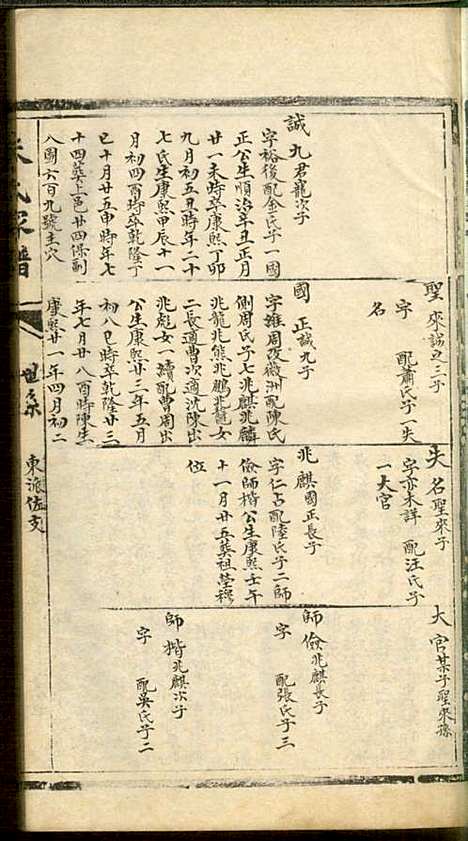 誠九君寵次子
字裕後配金氏子一國
正公生順治辛丑正月
廿一未時卒康熙丁卯
九月初五丑時年二十
七氏生康熙甲辰十一
月初四酉時卒乾隆丁
巳十月廿五申時年七
十四葬上邑廿四保副
八圖六百九號主穴
聖來誠立三子
字 配蕭氏子一失
名
國正誠九子
字維周改徽洲配陳氏
側周氏子七兆麒兆麟
兆龍兆熊兆鵬兆龍女
二長適曹次適沈陳出
兆彪女一續配曹周出
公生康熙廿三年五月
初八巳時卒乾隆廿三
年七月廿八酉時陳生
康熙廿一年四月初二
失名聖來子
字亦未詳 配汪氏子
一大官
兆麒國正長子
字仁占配陸氏子二師
儉師楷公生康熙壬午
十一月廿五葬祖塋穆
位
大官某子聖來孫
師儉兆麒長子
字 配張氏子三
師楷兆麒次子
字 配吳氏子二
氏家譜
世系
東派佐支